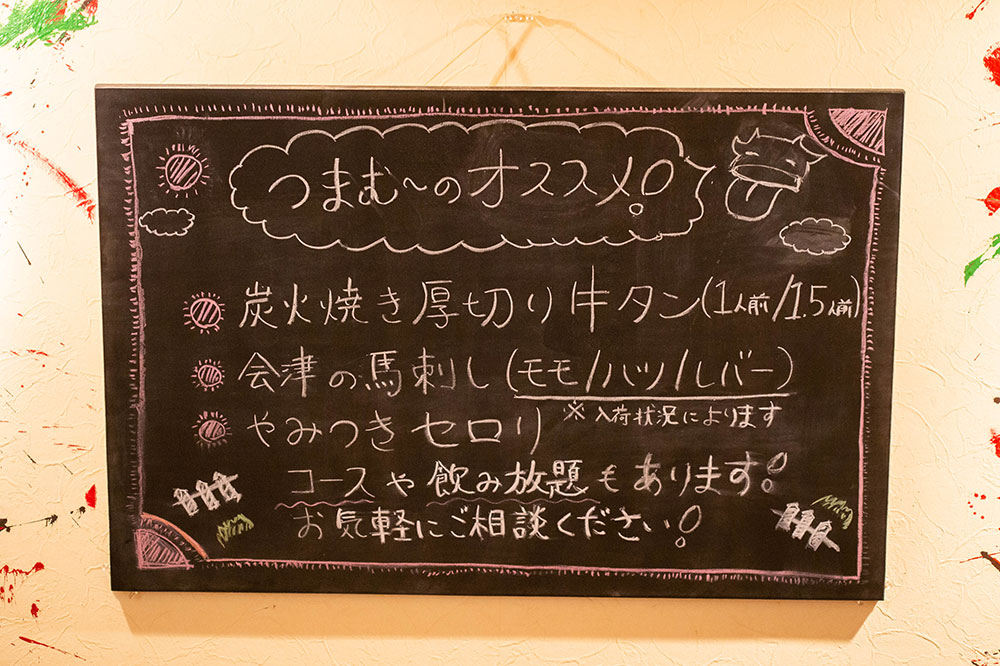 つまむ～のオススメ!
炭火焼き厚切り牛タン(1人前/1.5人前)
会津の馬刺し(モモ/ハツ/レバー)
※入荷状況によります
やみつきセロリ
コースや飲み放題もあります!
お気軽にご相談ください!